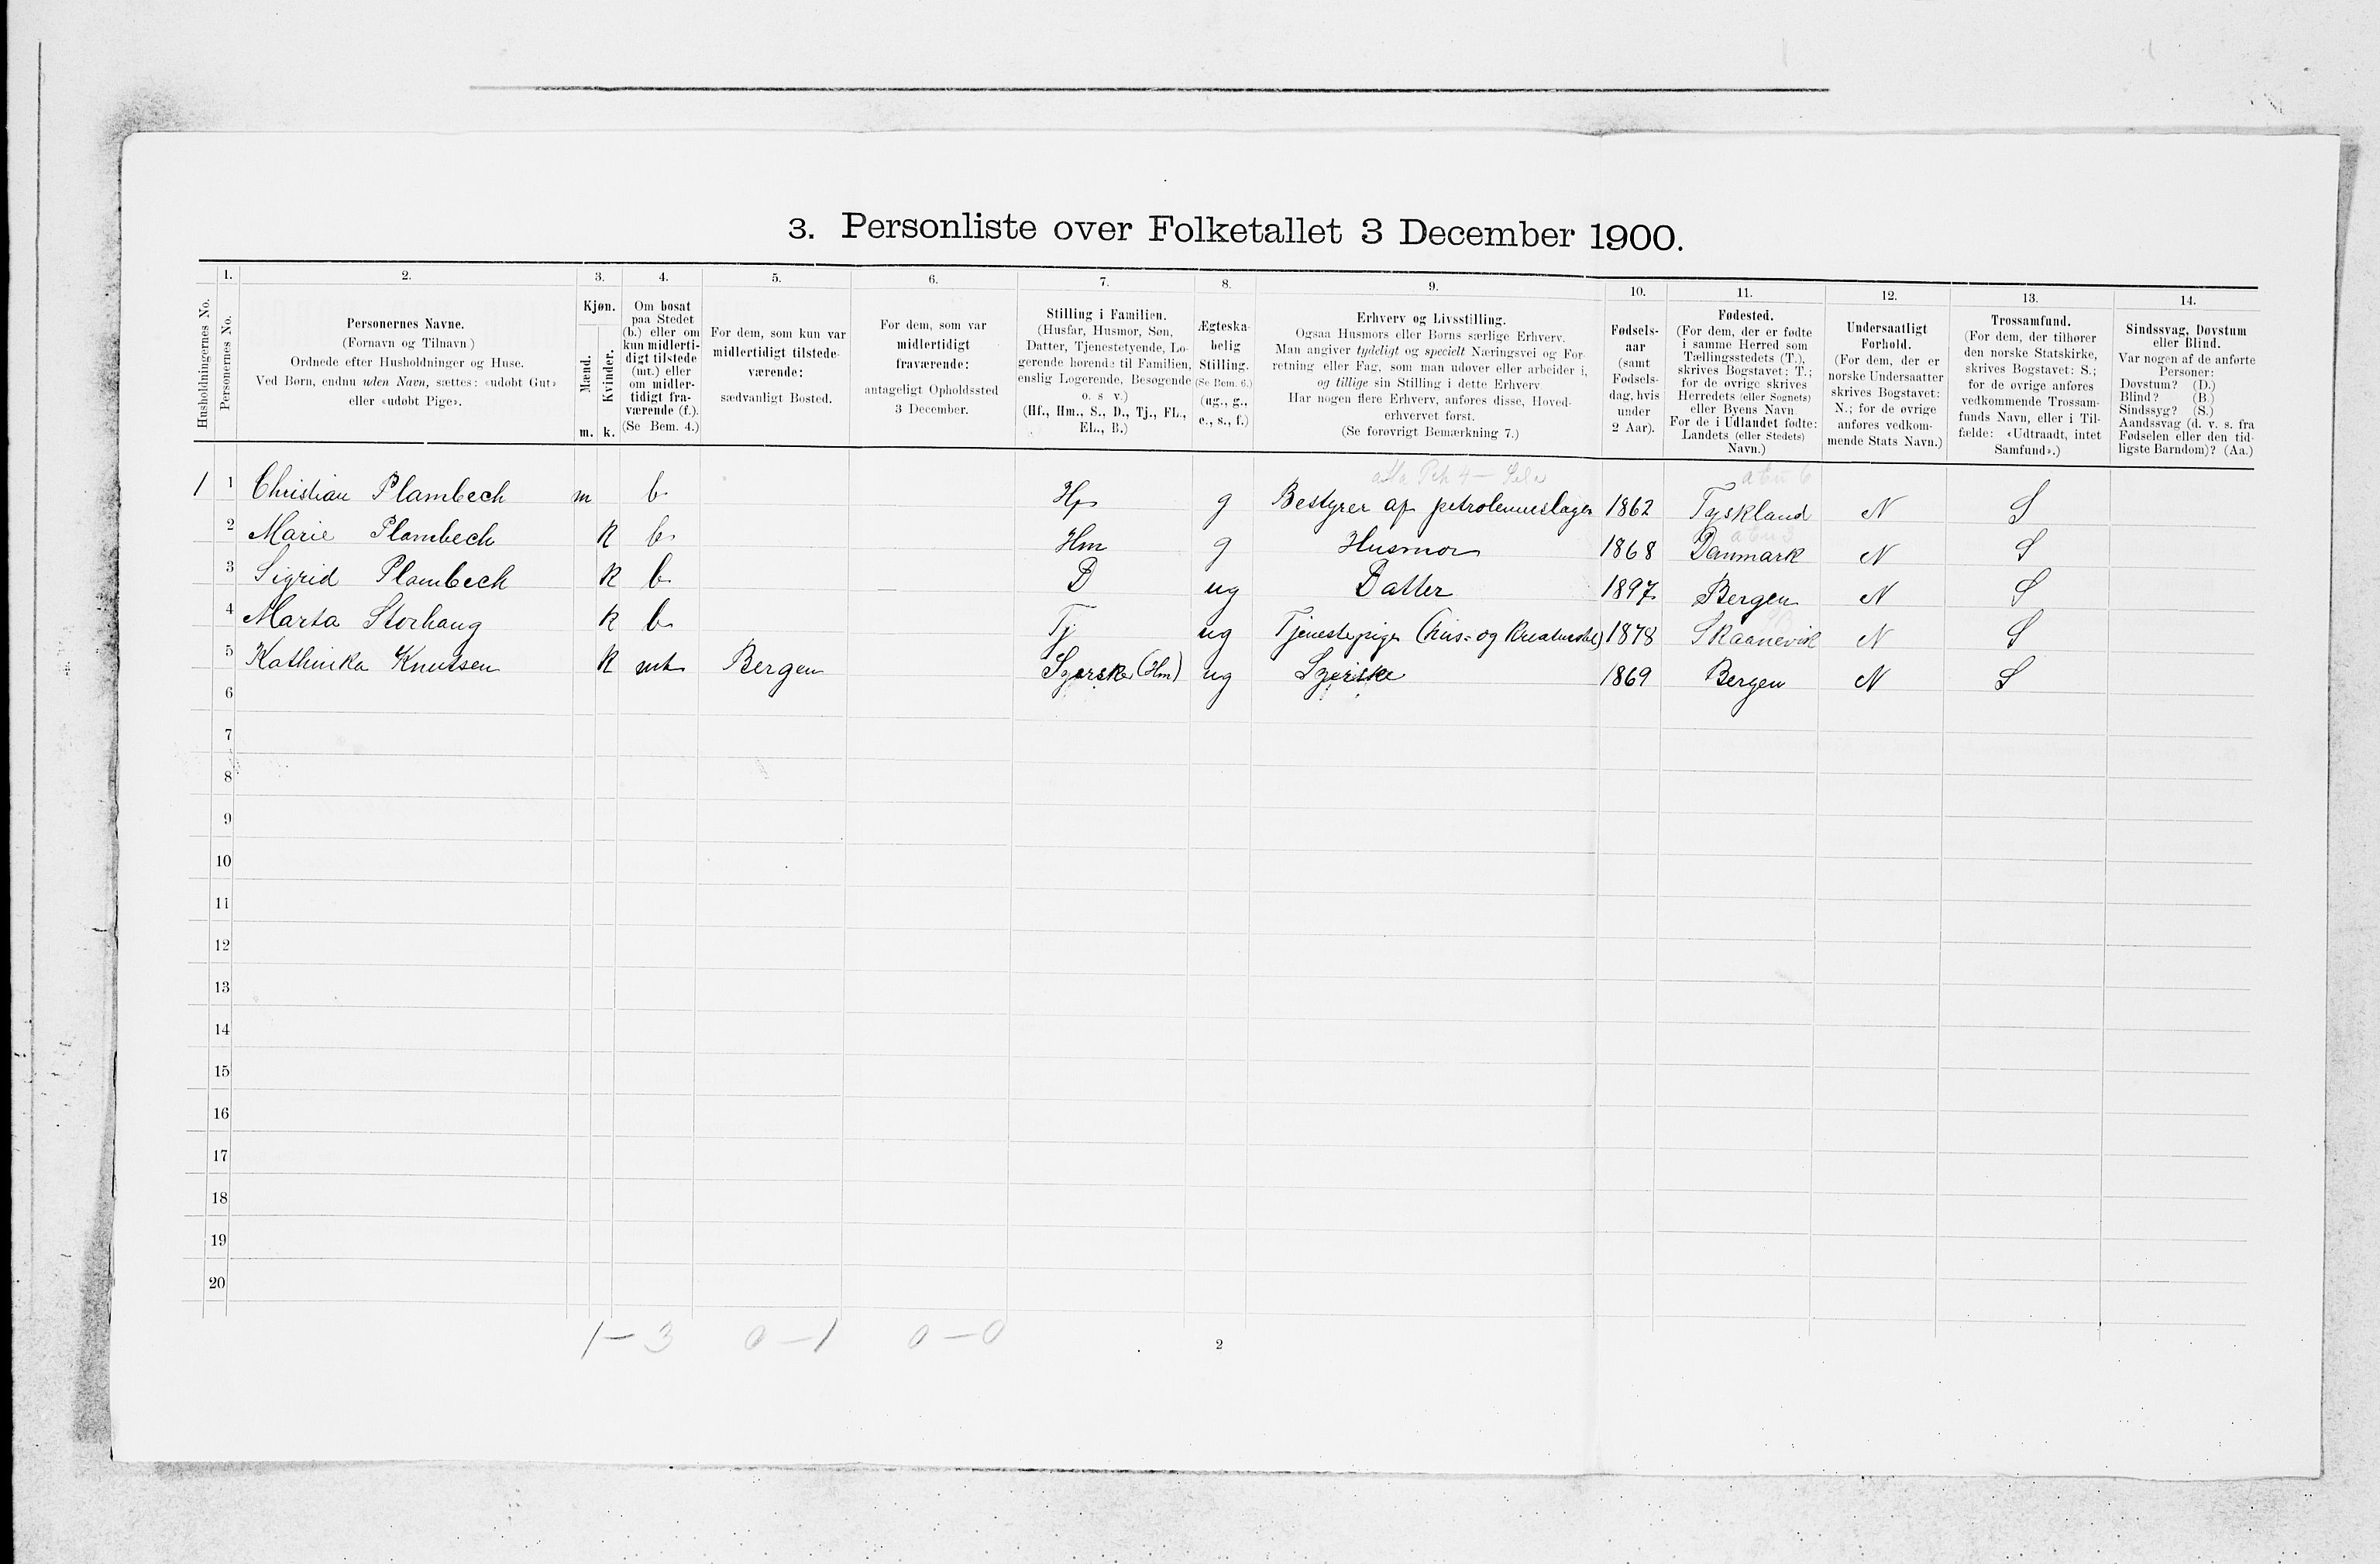 3. Personliste over Folketallet 3 December 1900.
Husholdningernes No.
1.
Personernes No.
2.
Personernes Navne.
(Fornavn og Tilnavn)
Ordnede efter Husholdninger og Huse.
Ved Børn, endnu uden Navn, sættes: «udøbt Gut»
eller «udøbt Pige».
3.
Kjøn.
Mænd.
Kvinder.
m. k.
4.
Om bosat
paa Stedet
(b.) eller om
kun midlerti-
digt tilstede
(mt.) eller
om midler-
tidigt fra-
værende (f.).
(Se Bem. 4.)
5.
For dem, som kun var
midlertidigt tilstede-
værende:
sædvanligt Bosted.
6.
For dem, som var
midlertidigt
fraværende:
antageligt Opholdssted
3 December.
7.
Stilling i Familien.
(Husfar, Husmor, Søn,
Datter, Tjenestetyende, Lo-
gerende hørende til Familien,
enslig Logerende, Besøgende
o. s v.)
(Hf., Hm., S., D., Tj., FL.,
EL., B.)
8.
Ægteska-
belig
Stilling.
(Se Bem. 6.)
(ug., g.,
e., s., f.)
9.
Erhverv og Livsstilling.
Ogsaa Husmors eller Børns særlige Erhverv.
Man angiver tydeligt og specielt Næringsvei og For-
retning eller Fag, som man udøver eller arbeider i,
og tillige sin Stilling i dette Erhverv.
Har nogen flere Erhverv, anføres disse, Hoved-
erhvervet først.
(Se forøvrigt Bemærkning 7.)
10.
Fødsels-
aar
(samt
Fødsels-
dag, hvis
under
2 Aar).
11.
Fødested.
(For dem, der er fødte
i samme Herred som
Tællingsstedets (T.),
skrives Bogstavet: T.;
for de øvrige skrives
Herredets (eller Sognets)
eller Byens Navn
For de i Udlandet fødte:
Landets (eller Stedets)
Navn.)
12.
Undersaatligt
Forhold.
(For dem, der er
norske Undersaatter
skrives Bogstavet:
N.; for de øvrige
anføres vedkom-
mende Stats Navn.)
13.
Trossamfund.
(For dem, der tilhører
den norske Statskirke,
skrives Bogstavet: S.;
for de øvrige anføres
vedkommende Trossam-
funds Navn, eller i Til-
fælde: «Udtraadt, intet
Samfund».)
14.
Sindssvag, Døvstum
eller Blind.
Var nogen af de anførte
Personer:
Døvstum? (D.)
Blind? (B.)
Sindssyg? (S.)
Aandssvag (d. v. s. fra
Fødselen eller den tid-
ligste Barndom)? (Aa.)
1 1 Christian Plambech m b. Hf g Bestyrer af petroleumslager 1862 Tyskland N S
2 Marie Plambech K b. Hm g Husmor 1868 Danmark N S
3 Sigrid Plambech K b. D ug Datter 1897 Bergen N S
4 Marta Storhaug K b. Tj ug Tjenestepige (hus- og Kreaturstel) 1878 Skaanevik N S
5 Kathinka Knutsen K mt Bergen Syerske (Hm) ug Syerske 1869 Bergen N S
6
7
8
9
10
11
12
13
14
15
16
17
18
19
20
1 – 3 0 – 1 0 – 0
2